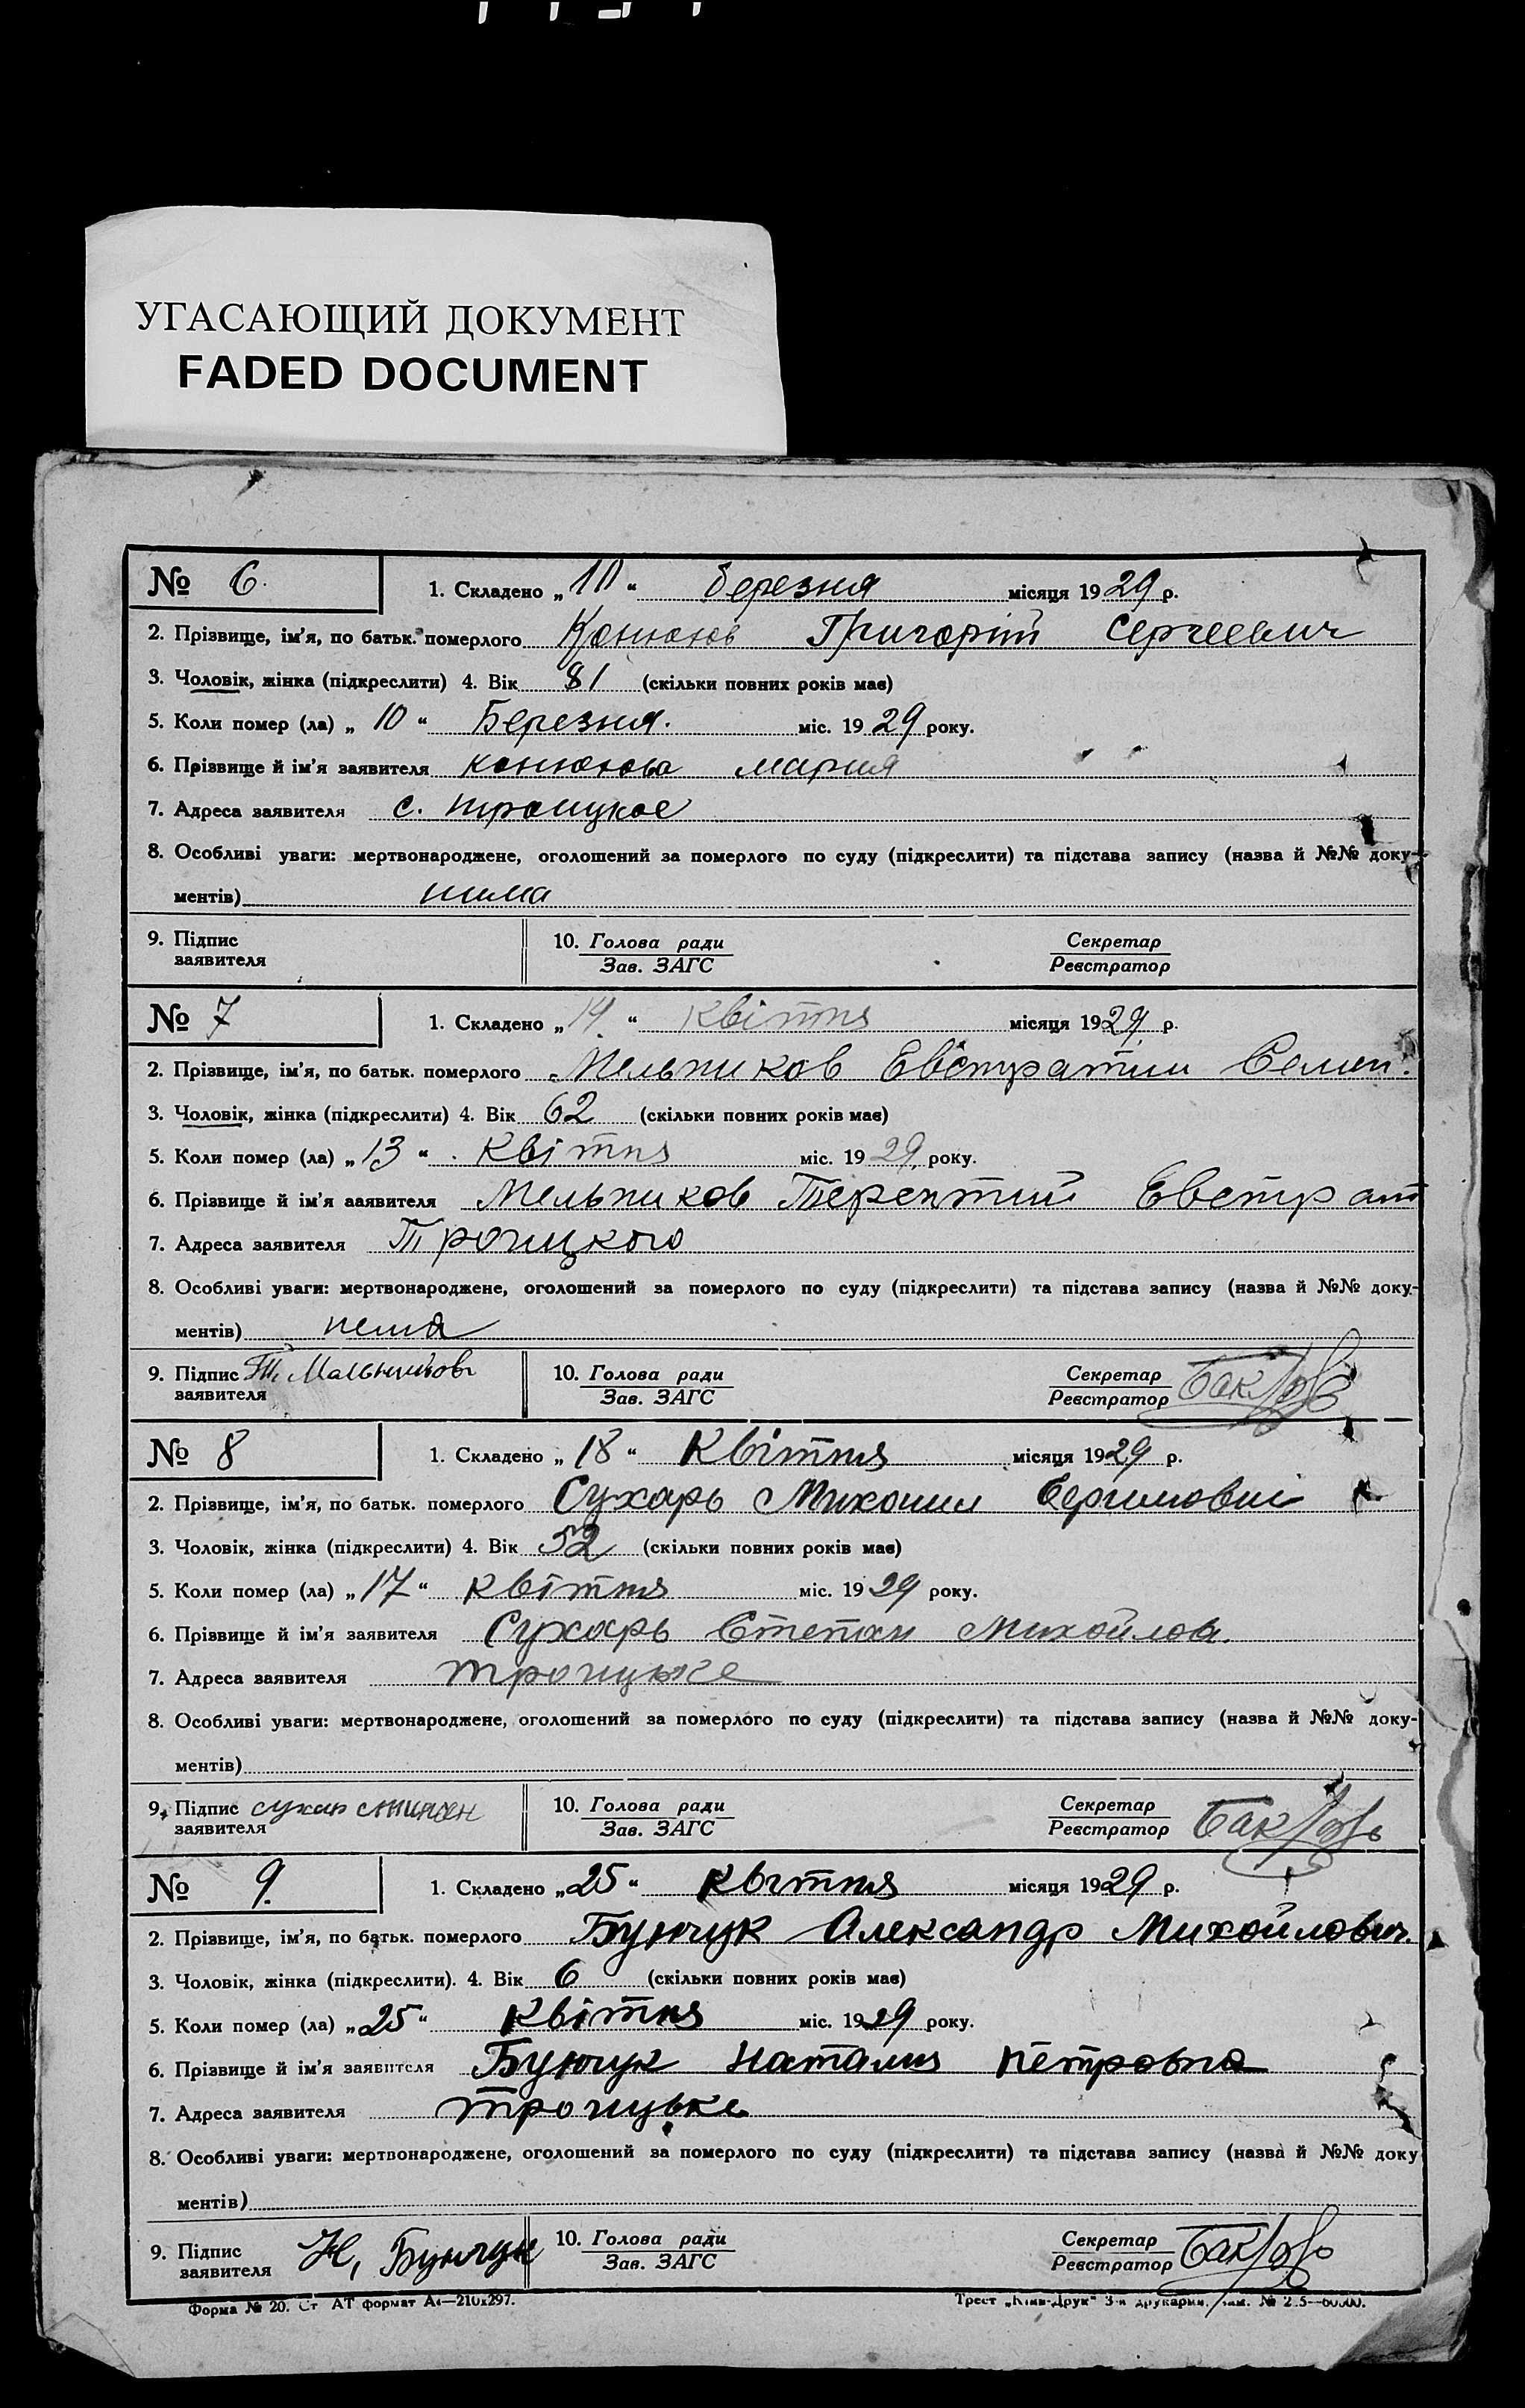 УГАСАЮЩИЙ ДОКУМЕНТ
FADED DOCUMENT
№ 6. 1. Складено „10“ березня місяця 1929 р.
2. Прізвище, ім'я, по батьк. померлого Конюхов Григорій Сергеевич
3. Чоловік, жінка (підкреслити) 4. Вік 81 (скільки повних років має)
5. Коли помер (ла) „10“ Березня. міс. 1929 року.
6. Прізвище й ім'я заявителя Конюхова Мария
7. Адреса заявителя с. Троицкое
8. Особливі уваги: мертвонароджене, оголошений за померлого по суду (підкреслити) та підстава запису (назва й №№ доку-
ментів) нима
9. Підпис заявителя 10. Голова ради Зав. ЗАГС Секретар Реєстратор
№ 7 1. Складено „14“ Квітня місяця 1929 р.
2. Прізвище, ім'я, по батьк. померлого Мельников Евстратий Семен.
3. Чоловік, жінка (підкреслити) 4. Вік 62 (скільки повних років має)
5. Коли помер (ла) „13“ Квітня міс. 1929 року.
6. Прізвище й ім'я заявителя Мельников Терентий Евстрат
7. Адреса заявителя Троицкого
8. Особливі уваги: мертвонароджене, оголошений за померлого по суду (підкреслити) та підстава запису (назва й №№ доку-
ментів) нема
9. Підпис заявителя Т. Мальников 10. Голова ради Зав. ЗАГС Секретар Реєстратор
№ 8 1. Складено „18“ Квітня місяця 1929 р.
2. Прізвище, ім'я, по батьк. померлого Сухарь Михаил
3. Чоловік, жінка (підкреслити) 4. Вік 52 (скільки повних років має)
5. Коли помер (ла) „17“ Квітня міс. 1929 року.
6. Прізвище й ім'я заявителя Сухарь Степан Михойлов.
7. Адреса заявителя Троицьке
8. Особливі уваги: мертвонароджене, оголошений за померлого по суду (підкреслити) та підстава запису (назва й №№ доку-
ментів)
9. Підпис заявителя сухар 10. Голова ради Зав. ЗАГС Секретар Реєстратор
№ 9. 1. Складено „25“ Квітня місяця 1929 р.
2. Прізвище, ім'я, по батьк. померлого Бунчук Александр Михойлович.
3. Чоловік, жінка (підкреслити). 4. Вік 6 (скільки повних років має)
5. Коли помер (ла) „25“ Квітня міс. 1929 року.
6. Прізвище й ім'я заявителя Бунчук Наталия Петровна
7. Адреса заявителя Троицьке
8. Особливі уваги: мертвонароджене, оголошений за померлого по суду (підкреслити) та підстава запису (назва й №№ доку
ментів)
9. Підпис заявителя Н, Бунчук 10. Голова ради Зав. ЗАГС Секретар Реєстратор
Форма № 20. Ст АТ формат А4—210x297. Трест „Київ-Друк“ 3-я друкарня.